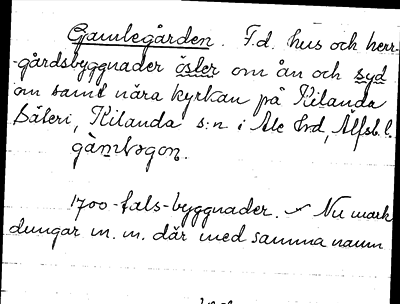 Gamlegården. F.d. hus och herr-
-gårdsbyggnader öster om ån och syd
om samt nära kyrkan på Kilanda
Säteri, Kilanda s:n i Ale Hrd, Älfsb. l.
gàmləgon.
1700-tals-byggnader. – Nu mark
dungar m. m. där med samma namn